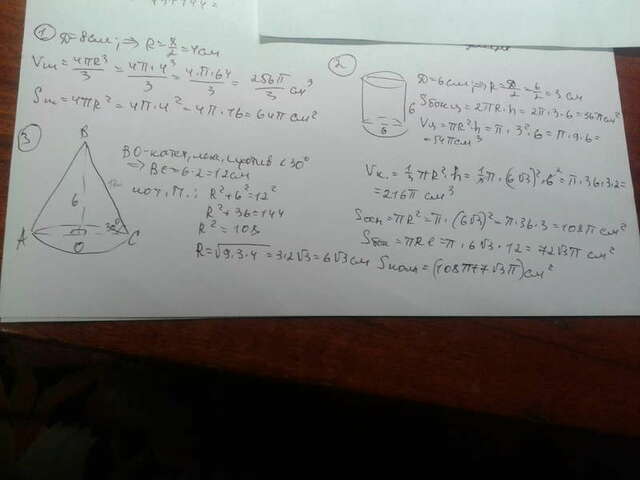 ① D=8см; ⇒ R=8/2=4см
Vш=4πR³/3=4π·4³/3=4·π·64/3=256π/3 см³
Sш=4πR²=4π·4²=4π·16=64π см²
②
6
6
D=6см; ⇒ R=D/2=6/2=3 см
Sбок.ц=2πR·h=2π·3·6=36πсм²
Vц=πR²·h=π·3²·6=π·9·6=
=54πсм³
③
B
6
12
30°
A
O
C
BO-катет, леж. против <30°
⇒ BC=6·2=12см
по т. П.: R²+6²=12²
R²+36=144
R²=108
R=√9·3·4=3·2√3=6√3см
Vк.=1/3πR²·h=1/3π·(6√3)²·6=π·36·3·2=
=216π см³
Sосн=πR²=π·(6√3)²=π·36·3=108π см²
Sбок=πRl=π·6√3·12=72√3π см²
Sполн=(108π+7√3π)см²